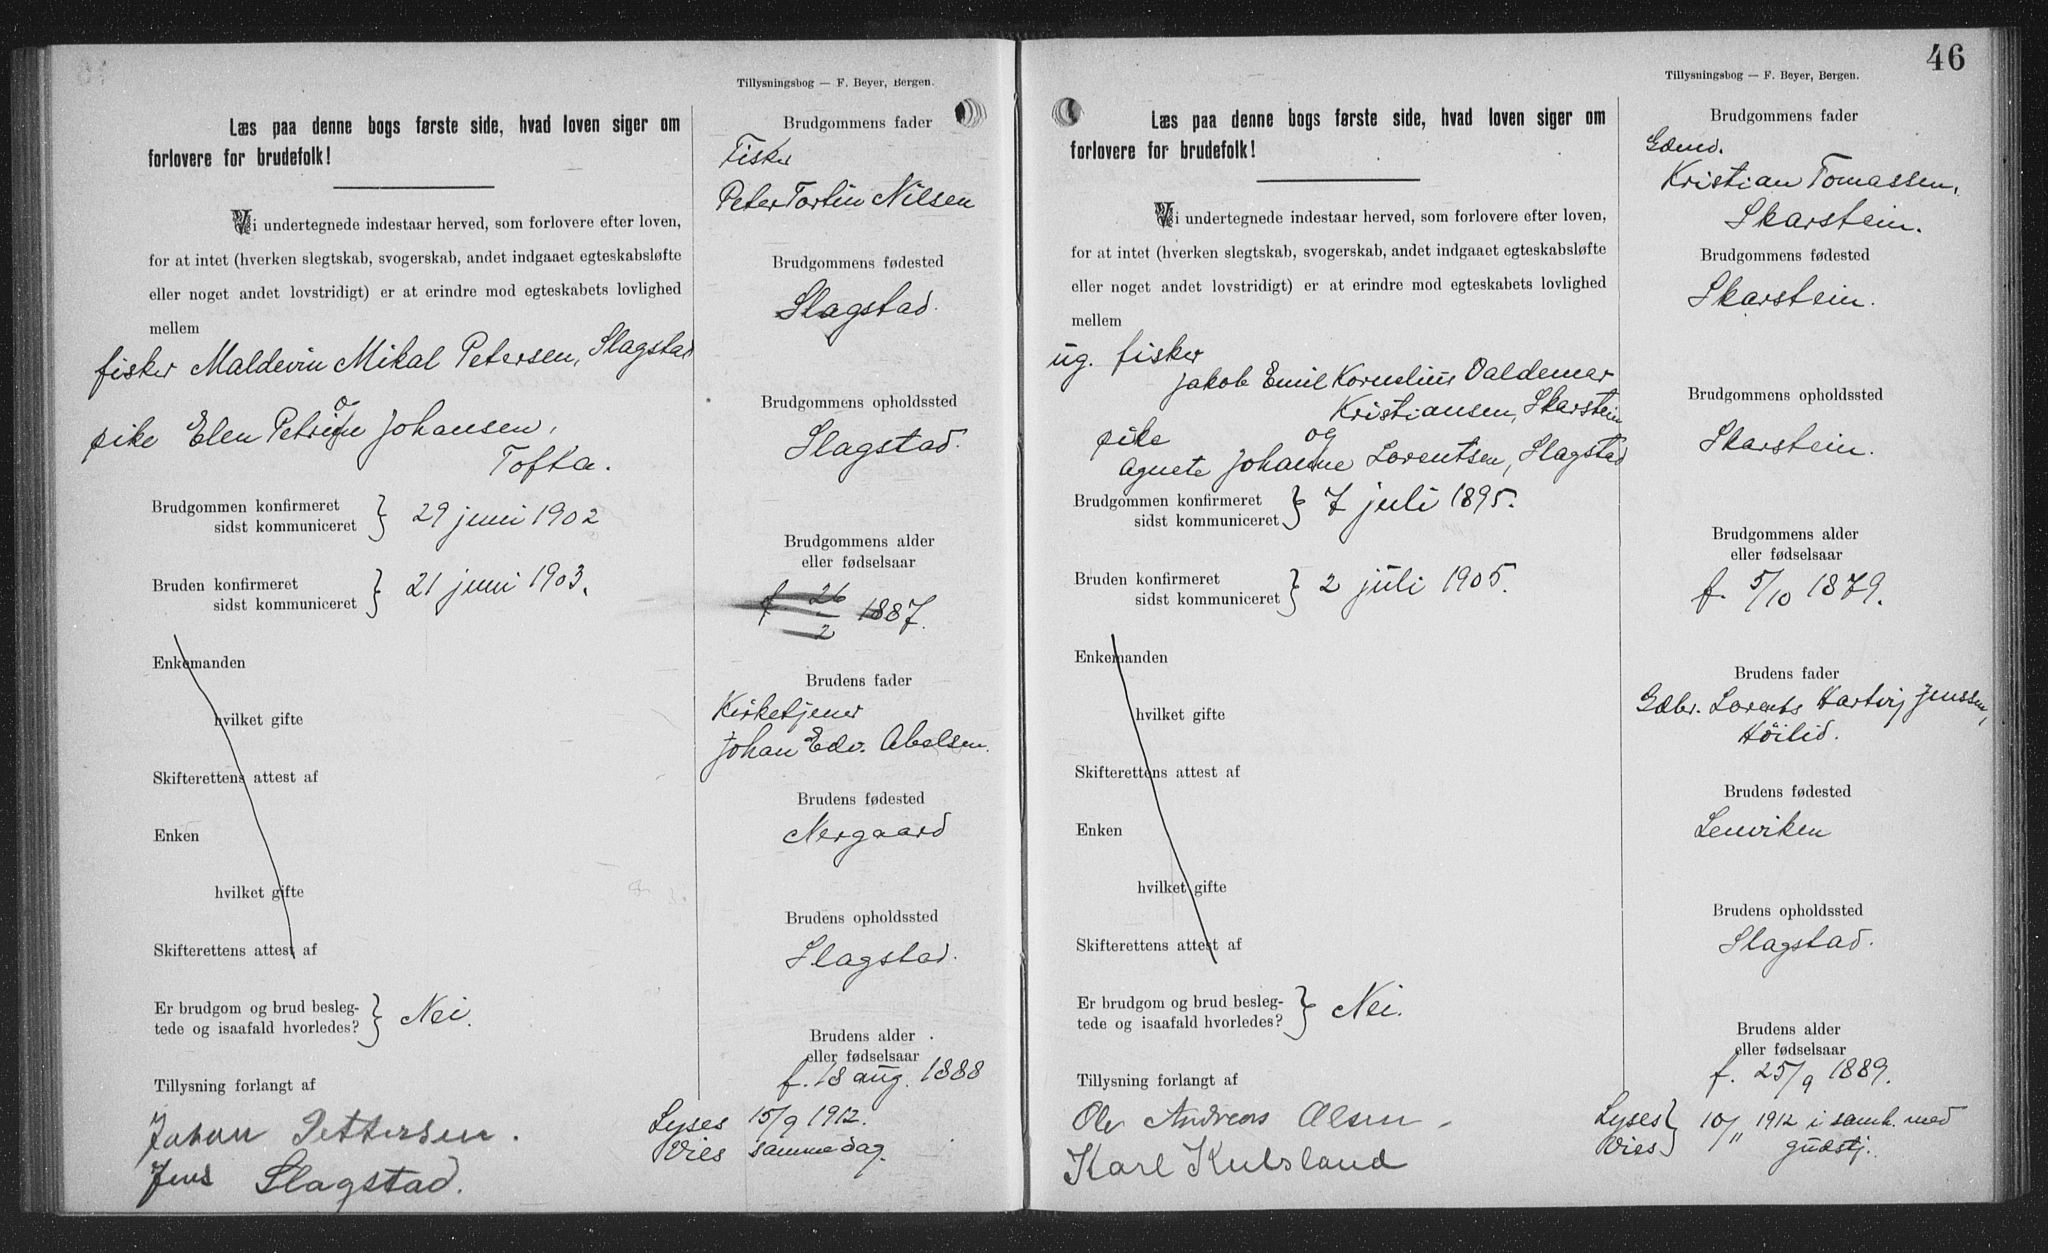 Tillysningsbog — F. Beyer, Bergen.
Læs paa denne bogs første side, hvad loven siger om
forlovere for brudefolk!
Vi undertegnede indestaar herved, som forlovere efter loven,
for at intet (hverken slegtskab, svogerskab, andet indgaaet egteskabsløfte
eller noget andet lovstridigt) er at erindre mod egteskabets lovlighed
mellem
fisker Maldevin Mikal Petersen, Slagstad
og
pike Elen Petrine Johansen,
Tofta.
Brudgommen konfirmeret
sidst kommuniceret } 29 juni 1902
Bruden konfirmeret
sidst kommuniceret } 21 juni 1903.
Enkemanden
hvilket gifte
Skifterettens attest af
Enken
hvilket gifte
Skifterettens attest af
Er brudgom og brud besleg-
tede og isaafald hvorledes? } Nei.
Tillysning forlangt af
Johan Pettersen.
Jens Slagstad.
Brudgommens fader
Fisker
Peter Tortin Nilsen
Brudgommens fødested
Slagstad.
Brudgommens opholdssted
Slagstad.
Brudgommens alder
eller fødselsaar
f. 26/2 1887.
Brudens fader
Kirketjener
Johan Edv. Abelsen.
Brudens fødested
Nergaard
Brudens opholdssted
Slagstad.
Brudens alder
eller fødselsaar
f. 18 aug. 1888
Lyses 15/9 1912.
Vies samme dag.
46
Tillysningsbog — F. Beyer, Bergen.
Læs paa denne bogs første side, hvad loven siger om
forlovere for brudefolk!
Vi undertegnede indestaar herved, som forlovere efter loven,
for at intet (hverken slegtskab, svogerskab, andet indgaaet egteskabsløfte
eller noget andet lovstridigt) er at erindre mod egteskabets lovlighed
mellem
ug. fisker
Jakob Emil Kornelius Valdemar
Kristiansen, Skarstein
og
pike
Agnete Johanne Lorentsen, Slagstad
Brudgommen konfirmeret
sidst kommuniceret } 7 juli 1895.
Bruden konfirmeret
sidst kommuniceret } 2 juli 1905.
Enkemanden
hvilket gifte
Skifterettens attest af
Enken
hvilket gifte
Skifterettens attest af
Er brudgom og brud besleg-
tede og isaafald hvorledes? } Nei.
Tillysning forlangt af
Ole Andreas Olsen.
Karl Kulsland
Brudgommens fader
Gdmd.
Kristian Tomassen,
Skarstein.
Brudgommens fødested
Skarstein.
Brudgommens opholdssted
Skarstein.
Brudgommens alder
eller fødselsaar
f. 5/10 1879.
Brudens fader
Gdbr. Lorents Hartvig Jenssen,
Høilid.
Brudens fødested
Lenviken
Brudens opholdssted
Slagstad.
Brudens alder
eller fødselsaar
f. 25/9 1889.
Lyses
Vies } 10/11 1912 i samb. med
gudstj.